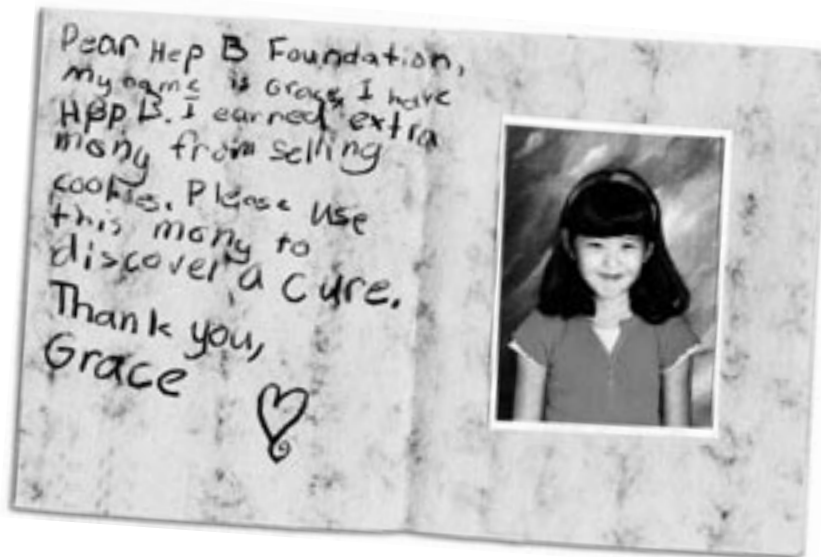 Dear Hep B Foundation,
my name is Grace, I have
Hep B. I earned extra
mony from selling
cookies. Please use
this mony to
discover a cure.
Thank you,
Grace